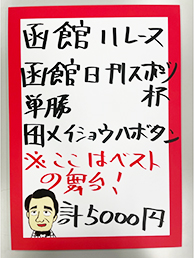 函館11レース
函館日刊スポーツ杯
単勝
田メイショウハボタン
※ここはベスト
の舞台！
計5000円